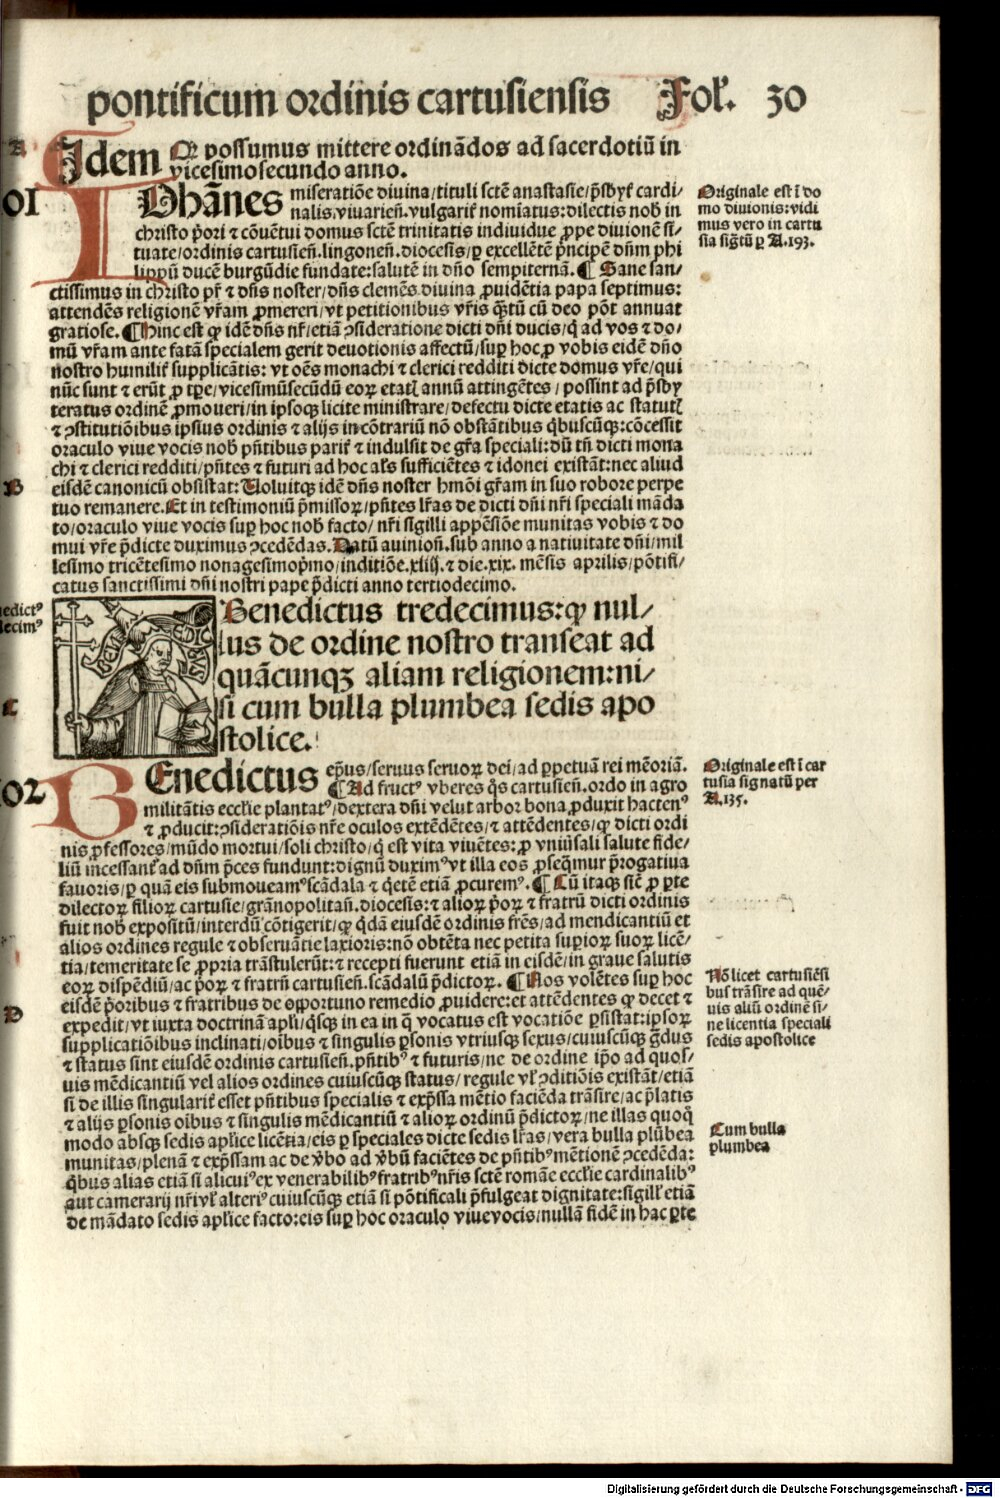 pontificum ordinis cartusiensis Fol. 30
A
Idem Qꝫ possumus mittere ordinãdos ad sacerdotiũ in
vicesimosecundo anno.
01
IOhãnes miseratiõe divina/tituli sctẽ anastasie/p̃sbyt̃ cardi/
nalis, viuarieñ. vulgarit̃ nomĩatus: dilectis nob̃ in
christo p̃ori ⁊ cõuẽtui domus sctẽ trinitatis indiuidue ꝓpe diuionẽ si/
tuate/ordinis cartusieñ. lingoneñ. diocesis/ꝑ excellẽtẽ p̃ncipẽ dñm phi
lippũ ducẽ burgũdie fundate: salutẽ in dño sempiternã. ¶ Sane san/
ctissimus in christo pr̃ ⁊ dñs noster/dñs clemẽs diuina ꝓuidẽtia papa septimus:
attendẽs religionẽ vr̃am ꝓmereri/vt petitionibus vr̃is q̃tũ cũ deo põt annuat
gratiose. ¶ Hinc est ꝙ idẽ dñs nr̃/etiã ꝯsideratione dicti dñi ducis/q̃ ad vos ⁊ do/
mũ vr̃am ante fatã specialem gerit deuotionis affectũ/suꝑ hoc ꝓ vobis eidẽ dño
nostro humilit̃ supplicãtis: vt oẽs monachi ⁊ clerici redditi dicte domus vr̃e/qui
nũc sunt ⁊ erũt ꝓ tꝑe/vicesimũsecũdũ eoꝝ etat̃ annũ attingẽtes/possint ad p̃sby
teratus ordinẽ ꝓmoueri/in ipsoqꝫ licite ministrare/defectu dicte etatis ac statut̃
⁊ ꝯstitutiõibus ipsius ordinis ⁊ alijs in cõtrariũ nõ obstãtibus q̃buscũqꝫ: cõcessit
oraculo viue vocis nob̃ pñtibus parit̃ ⁊ indulsit de gr̃a speciali: dũ tñ dicti mona
chi ⁊ clerici redditi/pñtes ⁊ futuri ad hoc al̃s sufficiẽtes ⁊ idonei existãt: nec aliud
B
eisdẽ canonicũ obsistat: Voluitqꝫ idẽ dñs noster hmõi gr̃am in suo robore perpe
tuo remanere. Et in testimoniũ p̃missoꝝ/pñtes lr̃as de dicti dñi nr̃i speciali mãda
to/oraculo viue vocis suꝑ hoc nob̃ facto/nr̃i sigilli appẽsiõe munitas vobis ⁊ do
mui vr̃e p̃dicte duximus ꝯcedẽdas. Datũ auinioñ. sub anno a natiuitate dñi/mil
lesimo tricẽtesimo nonagesimop̃mo/inditiõe. xiiij. ⁊ die. xix. mẽsis aprilis/põtifi/
catus sanctissimi dñi nostri pape p̃dicti anno tertiodecimo.
Originale est ĩ do
mo diuionis: vidi
mus vero in cartu
sia sig̃tũ ꝑ A.193.
edictꝰ
decimꝰ
BENEDICTUS
Benedictus tredecimus: ꝙ nul/
lus de ordine nostro transeat ad
quãcunqꝫ aliam religionem: ni/
si cum bulla plumbea sedis apo
stolice.
C
02
BEnedictus ep̃us/seruus seruoꝝ dei/ad ꝑpetuã rei memoriã.
¶ Ad fructꝰ vberes q̃s cartusieñ. ordo in agro
militãtis ecclie plantatꝰ/dextera dñi velut arbor bona ꝓduxit hactenꝰ
⁊ ꝓducit: ꝯsideratiõis nr̃e oculos extẽdẽtes/⁊ attẽdentes/ꝙ dicti ordi
nis ꝓfessores/mũdo mortui/soli christo/q̃ est vita viuẽtes: ꝓ vniũsali salute fide/
liũ incessant̃ ad dñm p̃ces fundunt: dignũ duximꝰ vt illa eos ꝓseq̃mur p̃rogatiua
fauoris/ꝑ quã eis submoueamꝰ scãdala ⁊ q̃etẽ etiã ꝓcuremꝰ. ¶ Cũ itaqꝫ sic̃ ꝓ ꝑte
dilectoꝝ filioꝝ cartusie/grãnopolitañ. diocesis: ⁊ alioꝝ p̃oꝝ ⁊ fratrũ dicti ordinis
fuit nob̃ expositũ/interdũ cõtigerit/ꝙ q̃dã eiusdẽ ordinis frẽs/ad mendicantiũ et
alios ordines regule ⁊ obseruãtie laxioris: nõ obtẽta nec petita suꝑioꝝ suoꝝ licẽ/
tia/temeritate se ꝓpria trãstulerũt: ⁊ recepti fuerunt etiã in eisdẽ/in graue salutis
eoꝝ dispẽdiũ/ac p̃oꝝ ⁊ fratrũ cartusieñ. scãdalũ p̃dictoꝝ. ¶ Nos volẽtes suꝑ hoc
D
eisdẽ p̃oribus ⁊ fratribus de oꝑportuno remedio ꝓuidere: et attẽdentes ꝙ decet ⁊
expedit/vt iuxta doctrinã apl̃i/q̃sqꝫ in ea in q̃ vocatus est vocatiõe ꝑsistat: ipsoꝝ
supplicatiõibus inclinati/oĩbus ⁊ singulis ꝑsonis vtriusqꝫ sexus/cuiuscũqꝫ g̃dus
⁊ status sint eiusdẽ ordinis cartusieñ. pñtibꝰ ⁊ futuris/ne de ordine ip̃o ad quos/
uis mẽdicantiũ vel alios ordines cuiuscũqꝫ status/regule vl̃ ꝯditiõis existãt/etiã
si de illis singularit̃ esset pñtibus specialis ⁊ exp̃ssa mẽtio faciẽda trãsire/ac p̃latis
⁊ alijs ꝑsonis oĩbus ⁊ singulis mẽdicantiũ ⁊ alioꝝ ordinũ p̃dictoꝝ/ne illas quoq̃
modo absqꝫ sedis apl̃ice licẽtia/eis ꝑ speciales dicte sedis lr̃as/vera bulla plũbea
munitas/plenã ⁊ exp̃ssam ac de ṽbo ad ṽbũ faciẽtes de pñtibꝰ mẽtionẽ ꝯcedẽda:
q̃bus alias etiã si alicuiꝰ ex venerabilibꝰ fratribꝰ nr̃is sctẽ romãe ecclie cardinalibꝰ
aut camerarij nr̃i vl̃ alteriꝰ cuiuscũqꝫ etiã si põtificali p̃fulgeat dignitate: sigill̃ etiã
de mãdato sedis apl̃ice facto: eis suꝑ hoc oraculo viue vocis/nullã fidẽ in hac ꝑte
Originale est ĩ car
tusia signatũ per
A.135.
Nõ licet cartusiẽsi
bus trãsire ad quẽ/
uis aliũ ordinẽ si/
ne licentia speciali
sedis apostolice
Cum bulla
plumbea
Digitalisierung gefördert durch die Deutsche Forschungsgemeinschaft - DFG